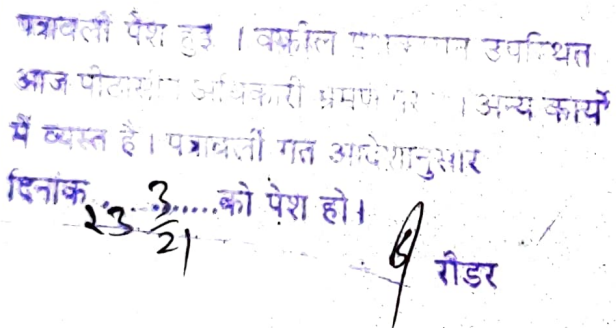 पत्रावली पेश हुई । वकील उपस्थित
आज पीठासीन अधिकारी भ्रमण पर । अन्य कार्यों
में व्यस्त है । पत्रावली गत आदेशानुसार
दिनांक 23 3/21 को पेश हो।
रीडर